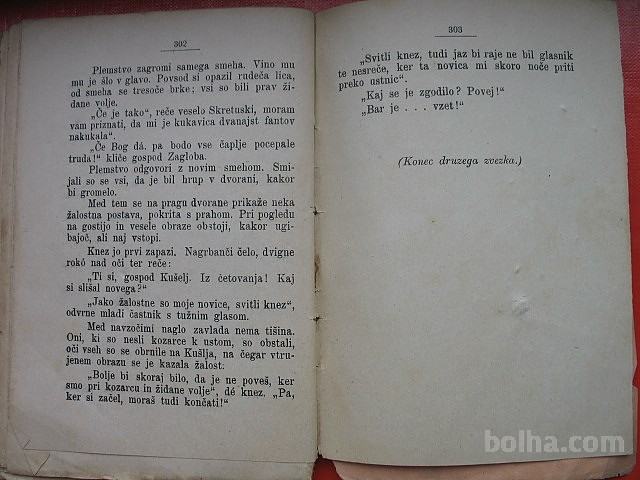 302
Plemstvo zagromi samega smeha. Vino mu
mu je šlo v glavo. Povsod si opazil rudeča lica,
od smeha se tresoče brke; vsi so bili prav ži-
dane volje.
„Če je tako“, reče veselo Skretuski, moram
vam priznati, da mi je kukavica dvanajst fantov
nakukala“.
„Če Bog dá. pa bodo vse čaplje pocepale
truda!“ kliče gospod Zagloba.
Plemstvo odgovori z novim smehom. Smi-
jali so se vsi, da je bil hrup v dvorani, kakor
bi gromelo.
Med tem se na pragu dvorane prikaže neka
žalostna postava, pokrita s prahom. Pri pogledu
na gostijo in vesele obraze obstoji, kakor ugi-
bajoč, ali naj vstopi.
Knez jo prvi zapazi. Nagrbanči čelo, dvigne
rokó nad oči ter reče:
„Ti si, gospod Kušelj. Iz četovanja! Kaj
si slišal novega?“
„Jako žalostne so moje novice, svitli knez“,
odvrne mladi častnik s tužnim glasom.
Med navzočimi naglo zavlada nema tišina.
Oni, ki so nesli kozarce k ustom, so obstali,
oči vseh so se obrnile na Kušlja, na čegar vtru-
jenem obrazu se je kazala žalost:
„Bolje bi skoraj bilo, da je ne poveš, ker
smo pri kozarcu in židane volje“, dé knez. „Pa,
ker si začel, moraš tudi končati!“
303
„Svitli knez, tudi jaz bi raje ne bil glasnik
te nesreče, ker ta novica mi skoro noče priti
preko ustnic“.
„Kaj se je zgodilo? Povej!“
„Bar je . . . vzet!“
(Konec druzega zvezka.)
bolha.com